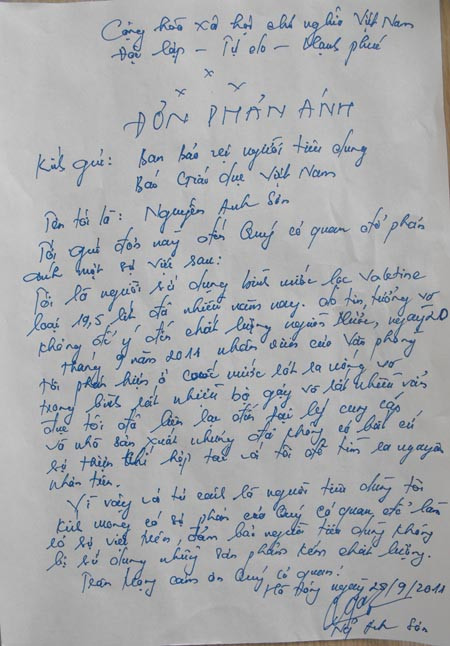 Cộng hòa xã hội chủ nghĩa Việt Nam
Độc lập - Tự do - Hạnh phúc
x x x
ĐƠN PHẢN ÁNH
Kính gửi: Ban bảo vệ người tiêu dùng
Báo Giáo dục Việt Nam
Tên tôi là: Nguyễn Anh Sơn
Tôi gửi đơn này đến Quý cơ quan để phản
ánh một sự việc sau:
Tôi là người sử dụng bình nước lọc Valetine
loại 19,5 lít đã nhiều năm nay. do tin tưởng và
không để ý đến chất lượng nguồn nước, ngày 20
tháng 9 năm 2011 nhân viên của văn phòng
tôi phát hiện ở nước rót ra uống và
trong bình rất nhiều bọ gậy và rất nhiều vẩn
đục tôi đã liên lạc đến đại lý cung cấp
và nhà sản xuất nhưng đã không có bất cứ
sự thiện chí hợp tác và tôi để tìm ra nguyên
nhân trên.
Vì vậy với tư cách là người tiêu dùng tôi
kính mong có sự phản của Quý cơ quan để làm
rõ sự việc trên, đảm bảo người tiêu dùng không
bị sử dụng những sản phẩm kém chất lượng.
Trân trọng cảm ơn Quý cơ quan!
Hà Đông ngày 29/9/2011
Anh Sơn